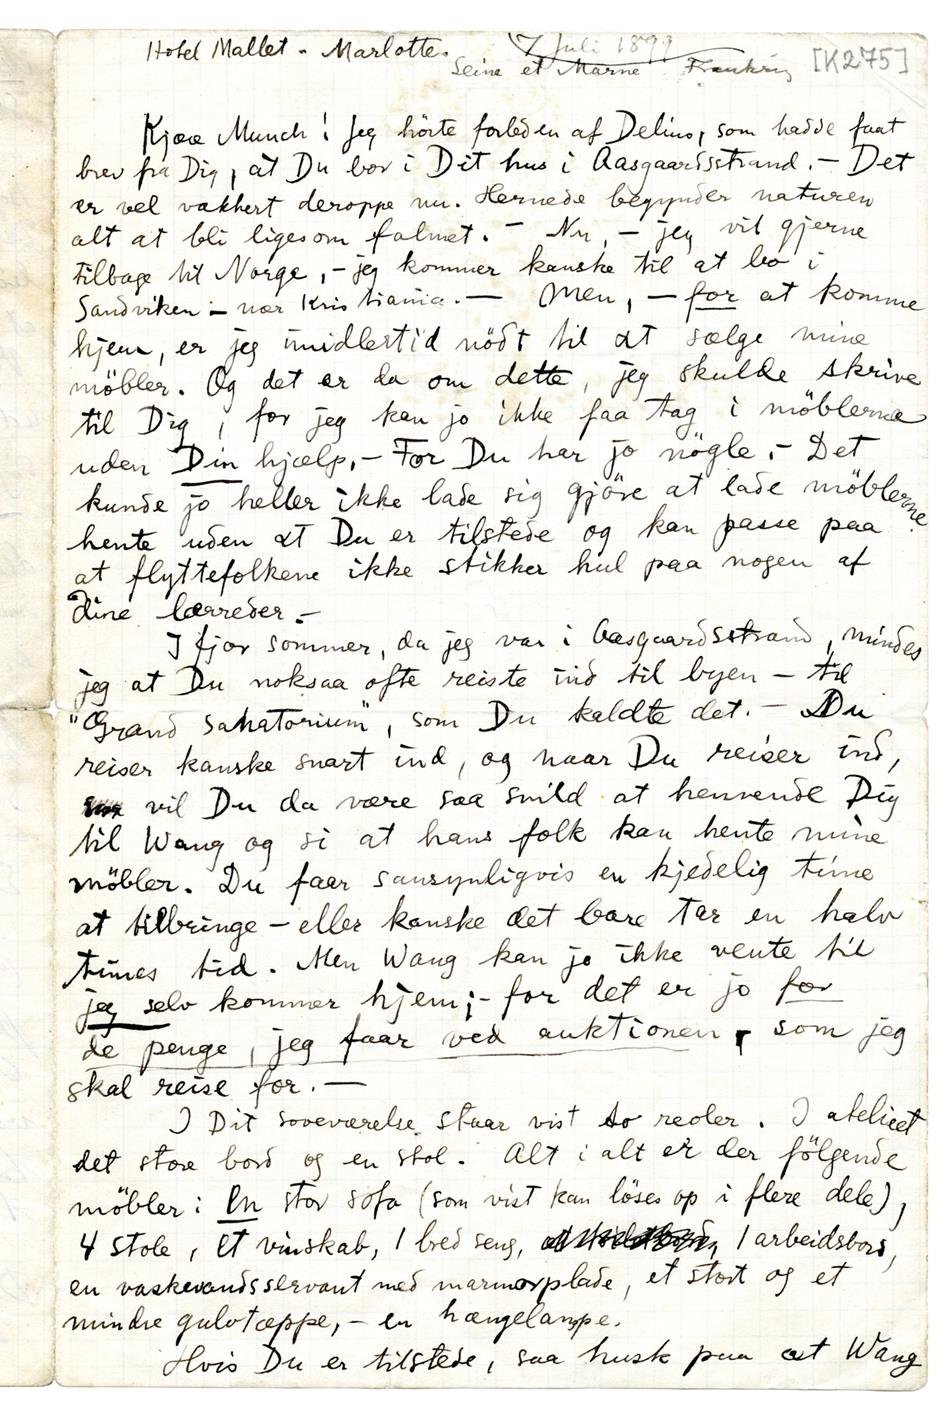 Hotel Mallet - Marlotte.
7 Juli 1899
[K275]
Seine et Marne Frankrig
Kjære Munch! Jeg hörte forleden af Delius, som hadde faat
brev fra Dig, at Du bor i Dit hus i Aasgaardsstrand. - Det
er vel vakkert deroppe nu. Hernede begynder naturen
alt at bli ligesom falmet. - Nu, - jeg vil gjerne
tilbage til Norge, - jeg kommer kanske til at bo i
Sandviken - nær Kristiania. - Men, - for at komme
hjem, er jeg imidlertid nödt til at sælge mine
möbler. Og det er da om dette, jeg skulde skrive
til Dig, for jeg kan jo ikke faa tag i möblerne
uden Din hjælp. - For Du har jo nögle. - Det
kunde jo heller ikke lade sig gjöre at lade möblerne
hente uden at Du er tilstede og kan passe paa
at flyttefolkene ikke stikker hul paa nogen af
dine lærreder. -
I fjor sommer, da jeg var i Aasgaardsstrand, mindes
jeg at Du noksaa ofte reiste ind til byen - til
"Grand Sanatorium", som Du kaldte det. - Du
reiser kanske snart ind, og naar Du reiser ind,
vil Du da være saa snild at henvende Dig
til Wang og si at hans folk kan hente mine
möbler. Du faar sansynligvis en kjedelig time
at tilbringe - eller kanske det bare tar en halv
times tid. Men Wang kan jo ikke vente til
jeg selv kommer hjem; - for det er jo for
de penge, jeg faar ved auktionen, som jeg
skal reise for. -
I Dit soveværelse staar vist to reoler. I atelieet
det store bord og en stol. Alt i alt er der fölgende
möbler: En stor sofa (som vist kan löses op i flere dele),
4 stole, et vinskab, 1 bred seng, 1 arbeidsbord,
en vaskevandsservant med marmorplade, et stort og et
mindre gulvtæppe, - en hængelampe.
Hvis Du er tilstede, saa husk paa at Wang